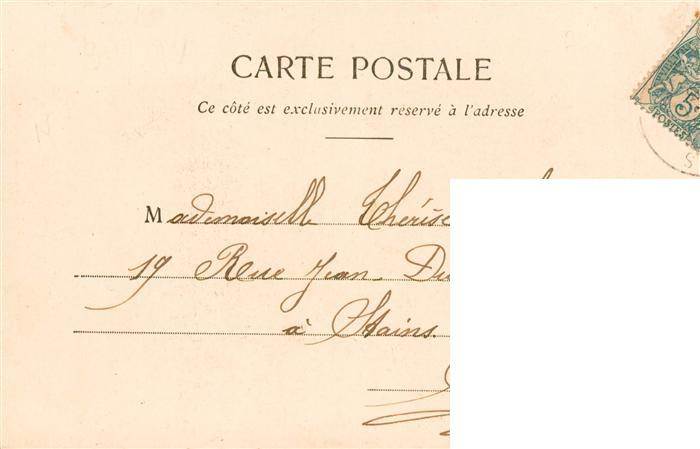 CARTE POSTALE
Ce côté est exclusivement réservé à l'adresse
Mademoiselle Thérèse
19 Rue Jean Du
à Stains.
POSTES